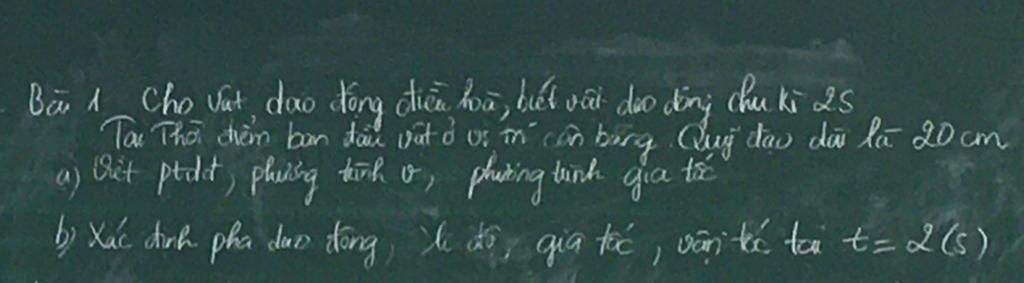 Bài 1 Cho vật dao động điều hoà, biết vật dao động chu kì 2s
Tại thời điểm ban đầu vật ở vị trí cân bằng. Quỹ đạo dài là 20 cm
a) Viết ptdđ, phương trình v, phương trình gia tốc
b) Xác định pha dao động, li độ, gia tốc, vận tốc tại t = 2 (s)